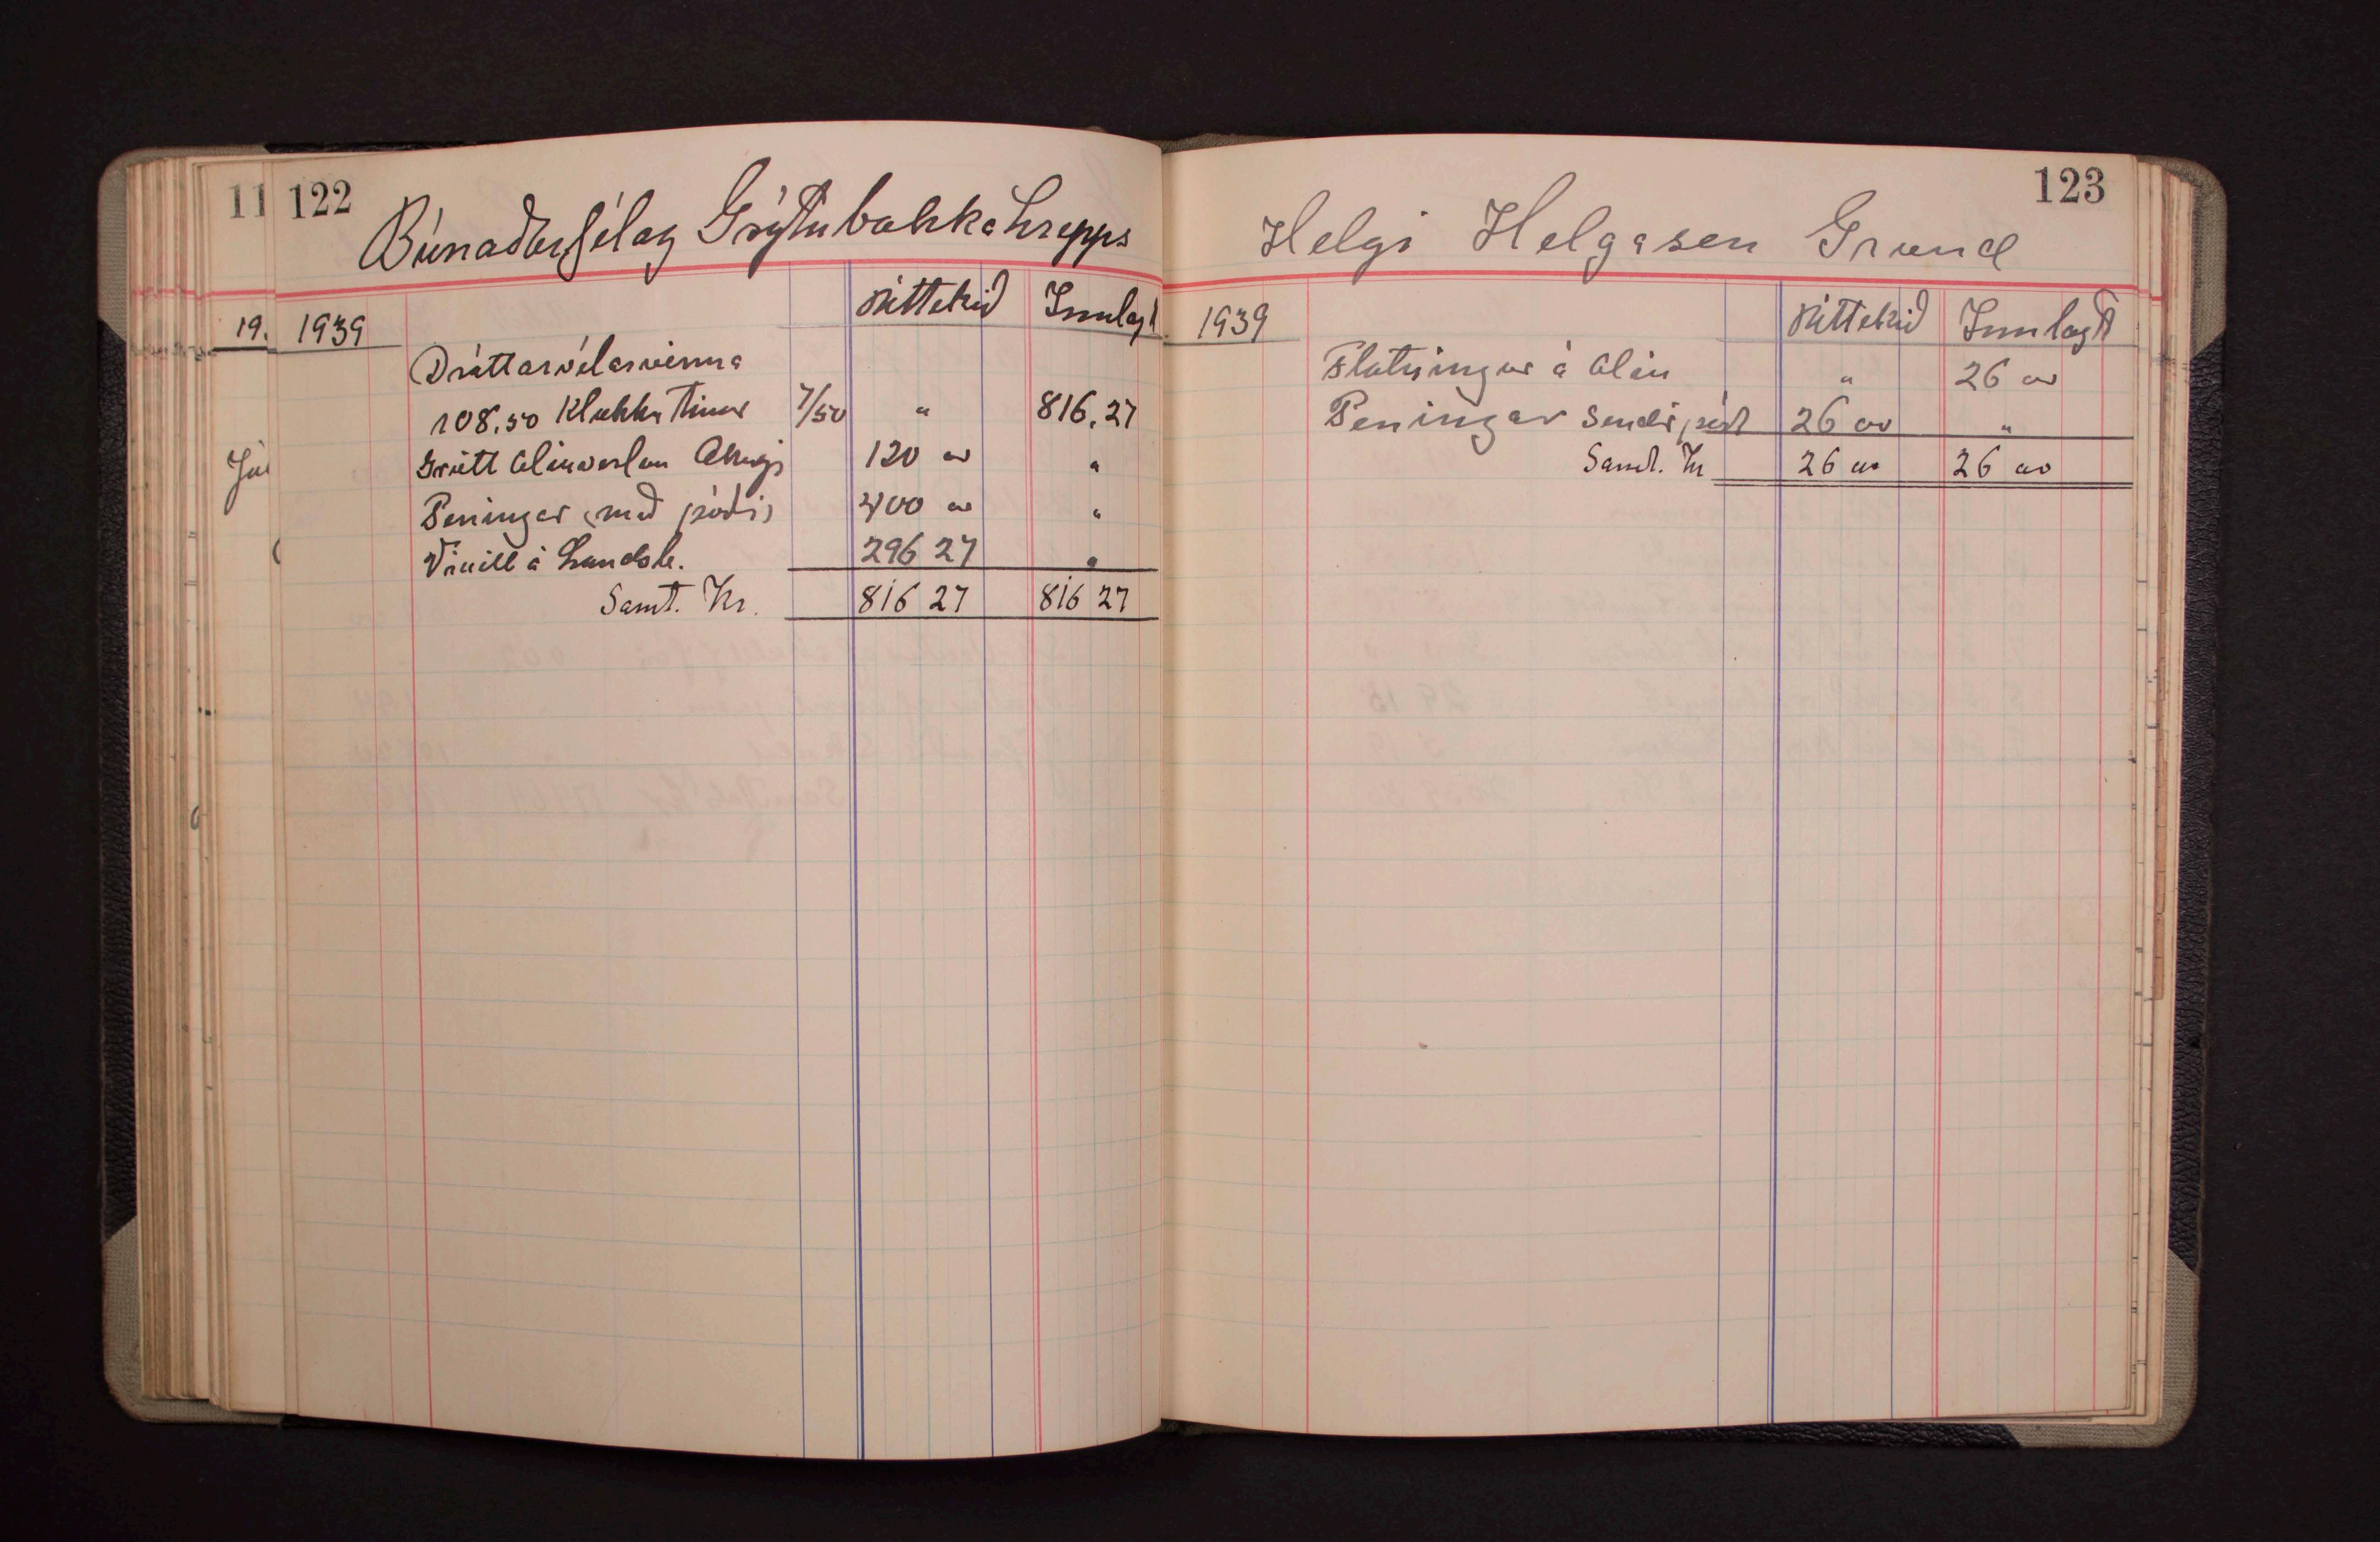 11 122
Búnaðarfélag Grýtubakkahrepps
Úttekið Innlagt
19. 1939
Dráttarvélarvinna
108.50 Klukku tímar 7/50 " 816.27
Greitt Akureyri 120 00 "
Júl
Peningar (með pósti) 400 00 "
296 27 "
Samt. Kr. 816 27 816 27
123
Helgi Helgason Grund
1939 Úttekið Innlagt
á " 26 00
Peningar Sendir póst 26 00 "
Samt. Kr 26 00 26 00